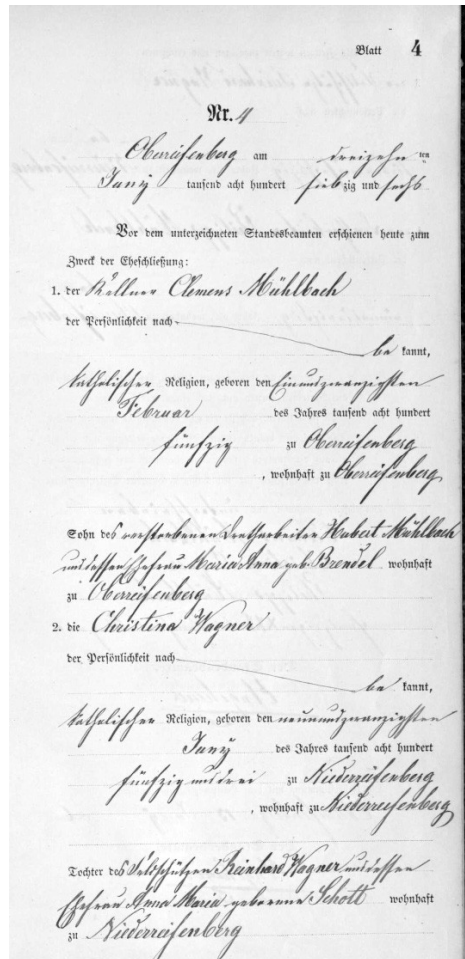 Blatt 4
Nr. 4
Oberreifenberg am dreizehn ten
Juny tausend acht hundert siebzig und sechs
Vor dem unterzeichneten Standesbeamten erschienen heute zum
Zweck der Eheschließung:
1. der Kellner Clemens Mühlbach
der Persönlichkeit nach
be kannt,
katholischer Religion, geboren den Einundzwanzigsten
Februar des Jahres tausend acht hundert
fünfzig zu Oberreifenberg
, wohnhaft zu Oberreifenberg
Sohn des verstorbenen Dratharbeiter Hubert Mühlbach
und dessen Ehefrau Maria Anna geb. Brendel wohnhaft
zu Oberreifenberg
2. die Christina Wagner
der Persönlichkeit nach
be kannt,
katholischer Religion, geboren den neunundzwanzigsten
Juny des Jahres tausend acht hundert
fünfzig und drei zu Niederreifenberg
, wohnhaft zu Niederreifenberg
Tochter des Feldschützen Reinhard Wagner und dessen
Ehefrau Anna Maria geborene Schott wohnhaft
zu Niederreifenberg